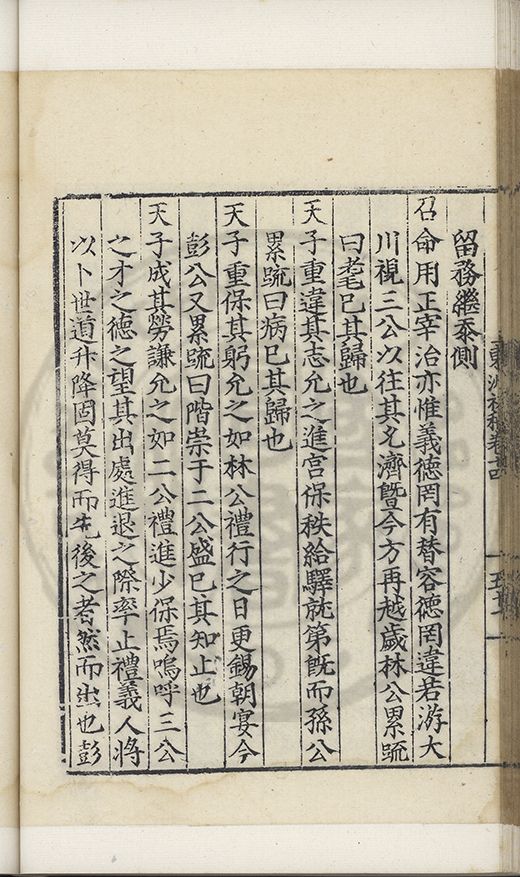 留務繼忝側
召命用正宰治亦惟義德罔有替容德罔違若游大
川視三公以往其允濟曁今方再越歲林公累䟽
曰耄已其歸也
天子重違其志允之進宫保秩給驛旋第旣而孫公
累䟽曰病已其歸也
天子重保其躬允之如林公禮行之日更錫朝宴今
彭公又累䟽曰階崇于二公盛已其知止也
天子成其勞謙允之如二公禮進少保焉嗚呼三公
之才之德之望其出處進退之際率止禮義人將
以卜世道升降固莫得而先後之者然而出也彭